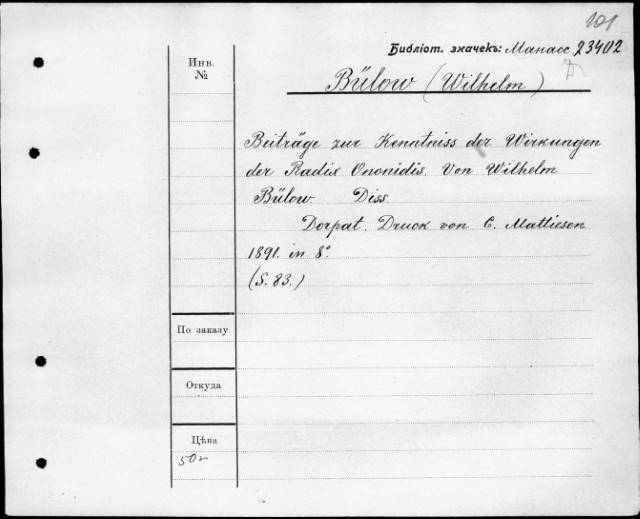 101
Библіот. значекъ: Манасс 23402
D
Инв.
№
Bülow (Wilhelm)
Beiträge zur Kenntniss der Wirkungen
der Radix Ononidis. Von Wilhelm
Bülow. Diss.
Dorpat. Druck von C. Mattiesen
1891. in 8°.
(S. 83.)
По заказу
Откуда
Цѣна
50